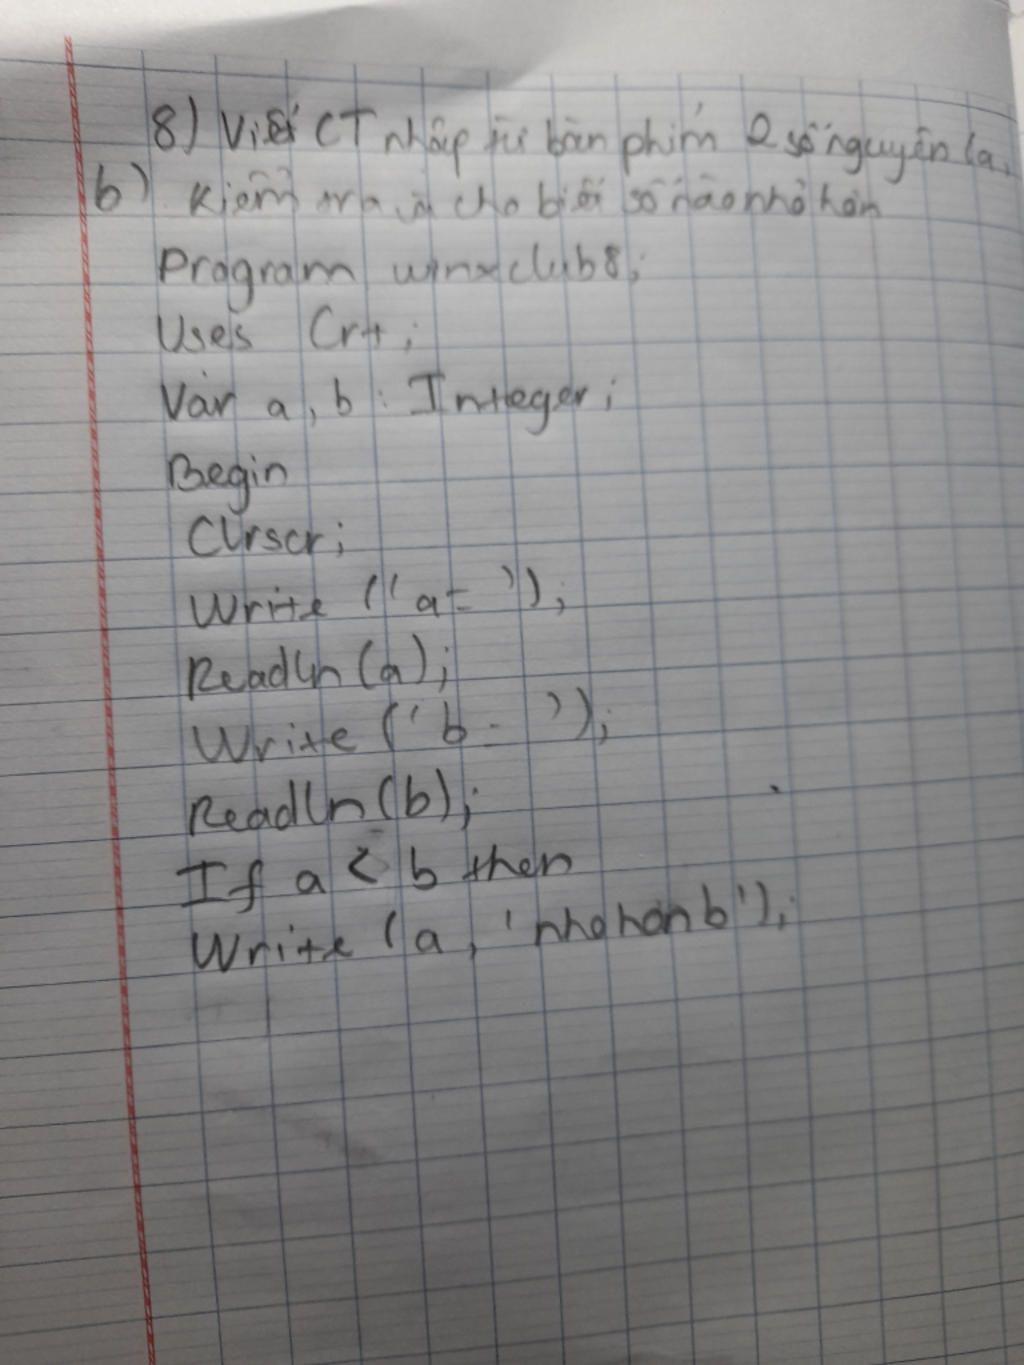 8) Viết CT nhập từ bàn phím 2 số nguyên (a,
b) Kiểm tra và cho biết số nào nhỏ hơn
Program winxclub8;
Uses Crt;
Var a, b : Integer;
Begin
Clrscr;
Write ('a= ');
Readln (a);
Write ('b= ');
Readln (b);
If a < b then
Write (a, 'nho hon b');